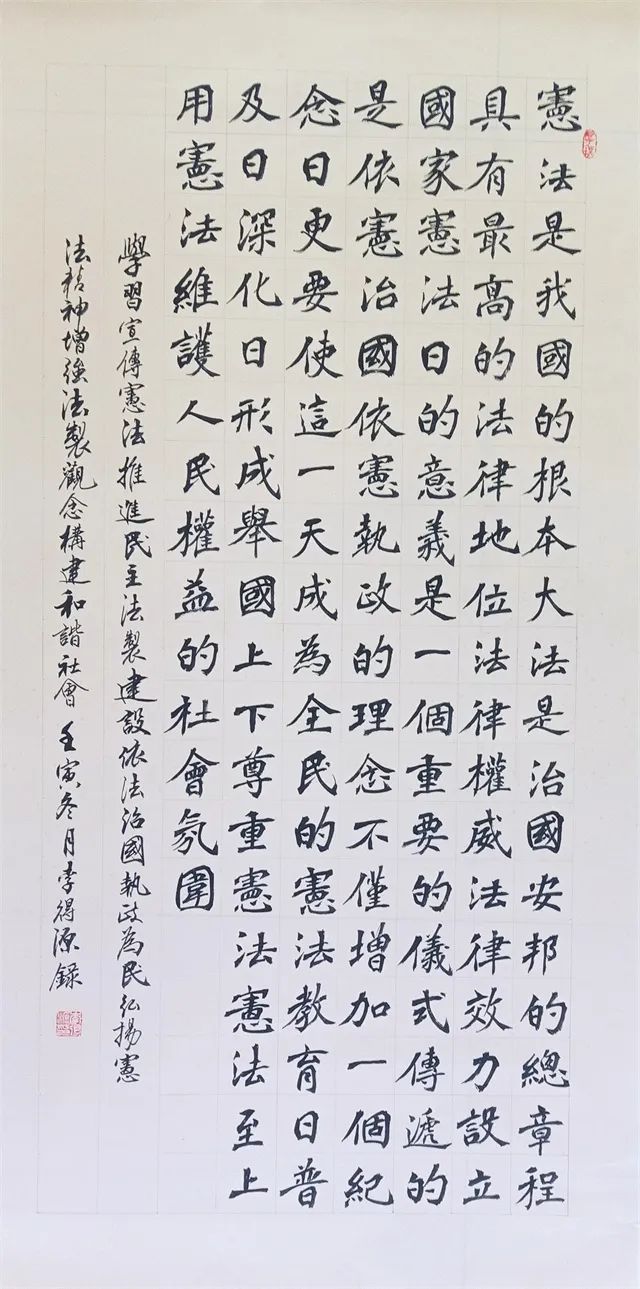 憲法是我國的根本大法是治國安邦的總章程
具有最高的法律地位法律權威法律效力設立
國家憲法日的意義是一個重要的儀式傳遞的
是依憲治國依憲執政的理念不僅增加一個紀
念日更要使這一天成為全民的憲法教育日普
及日深化日形成舉國上下尊重憲法憲法至上
用憲法維護人民權益的社會氛圍
學習宣傳憲法推進民主法製建設依法治國執政為民弘揚憲
法精神增強法製觀念構建和諧社會 壬寅冬月李得源錄